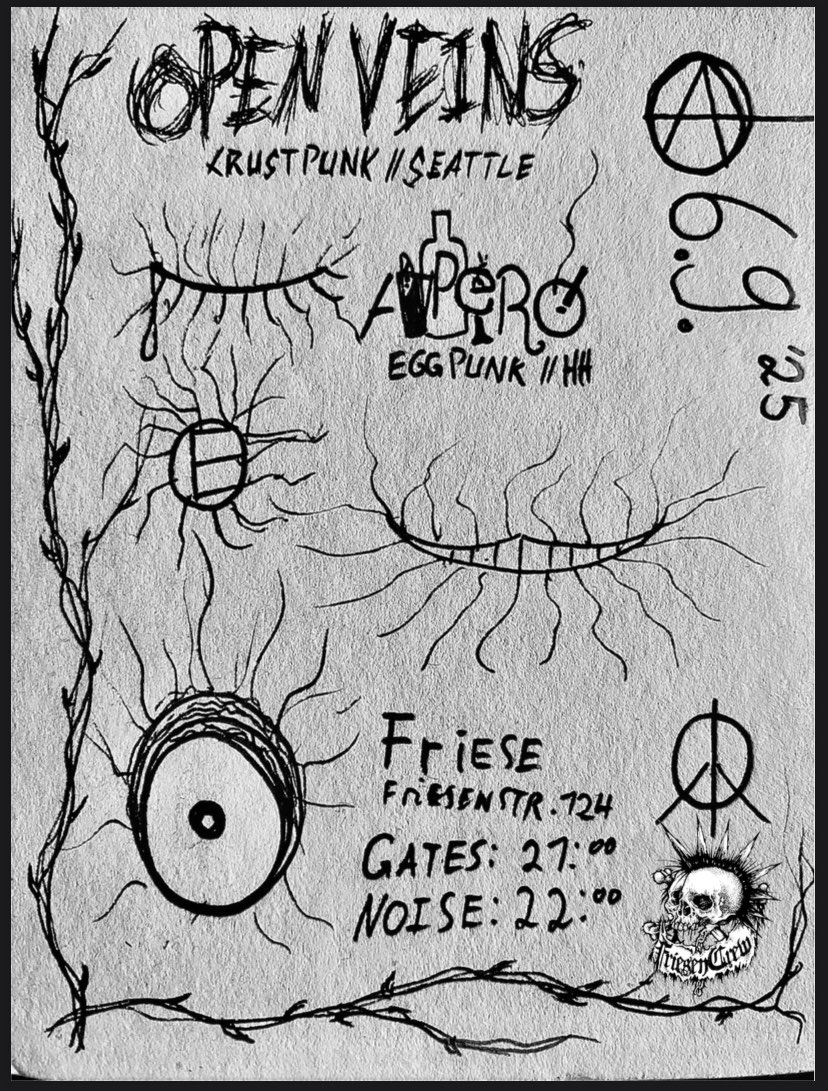 OPEN VEINS
CRUSTPUNK // SEATTLE
A
6.9.
'25
APeRO
EGGPUNK // HH
E
FriESE
FriESENSTR.124
GATES: 21:00
NOISE: 22:00
FriesenCrew